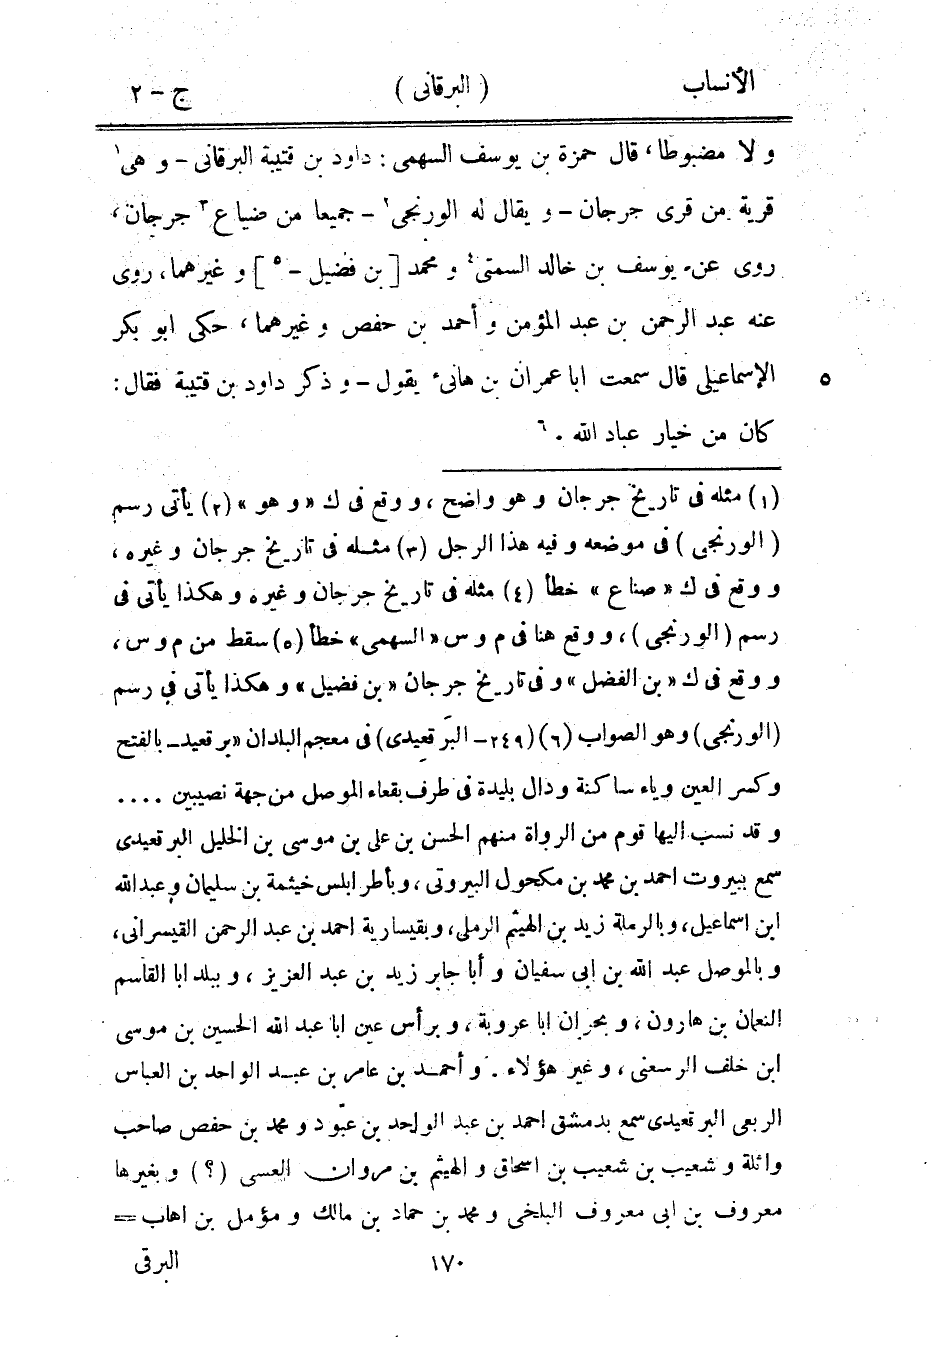 الأنساب ( البرقانى ) ج - ٢
و لا مضبوطا، قال حمزة بن يوسف السهمى : داود بن قتيبة البرقانى - و هى١
قرية من قرى جرجان - و يقال له الورنجى٢ - جميعا من ضياع٣ جرجان،
روى عن يوسف بن خالد السمتى٤ و محمد [ بن فضيل - ٥ ] و غيرهما، روى
عنه عبد الرحمن بن عبد المؤمن و أحمد بن حفص و غيرهما، حكى ابو بكر
الإسماعيلى قال سمعت ابا عمران بن هانىء يقول - و ذكر داود بن قتيبة فقال : ٥
كان من خيار عباد الله . ٦
(١) مثله فى تاريخ جرجان و هو واضح، و وقع فى ك « و هو » (٢) يأتى رسم
( الورنجى ) فى موضعه و فيه هذا الرجل (٣) مثله فى تاريخ جرجان و غيره،
و وقع فى ك « صناع » خطأ (٤) مثله فى تاريخ جرجان و غيره و هكذا يأتى فى
رسم ( الورنجى )، و وقع هنا فى م و س « السهمى » خطأ (٥) سقط من م و س،
و وقع فى ك « بن الفضل » و فى تاريخ جرجان « بن فضيل » و هكذا يأتى فى رسم
(الورنجى) وهو الصواب (٦) (٢٤٩ - البَرقعِيدى) فى معجم البلدان « برقعيد - بالفتح
و كسر العين و ياء ساكنة و دال بليدة فى طرف بقعاء الموصل من جهة نصيبين ....
و قد نسب اليها قوم من الرواة منهم الحسن بن على بن موسى بن الخليل البرقعيدى
سمع ببيروت احمد بن محمد بن مكحول البيروتى، و بأطرابلس خيثمة بن سليمان و عبد الله
ابن اسماعيل، و بالرملة زيد بن الهيثم الرملى، و بقيسارية احمد بن عبد الرحمن القيسرانى،
و بالموصل عبد الله بن ابى سفيان و أبا جابر زيد بن عبد العزيز، و ببلد ابا القاسم
النعمان بن هارون، و بحران ابا عروبة، و برأس عين ابا عبد الله الحسين بن موسى
ابن خلف الرسعنى، و غير هؤلاء . و أحمد بن عامر بن عبد الواحد بن العباس
الربعى البرقعيدى سمع بدمشق احمد بن عبد الواحد بن عبّود و محمد بن حفص صاحب
واثلة و شعيب بن شعيب بن اسحاق و الهيثم بن مروان العسى (؟) و بغيرها
معروف بن ابى معروف البلخى و محمد بن حماد بن مالك و مؤمل بن اهاب =
١٧٠ البرقى